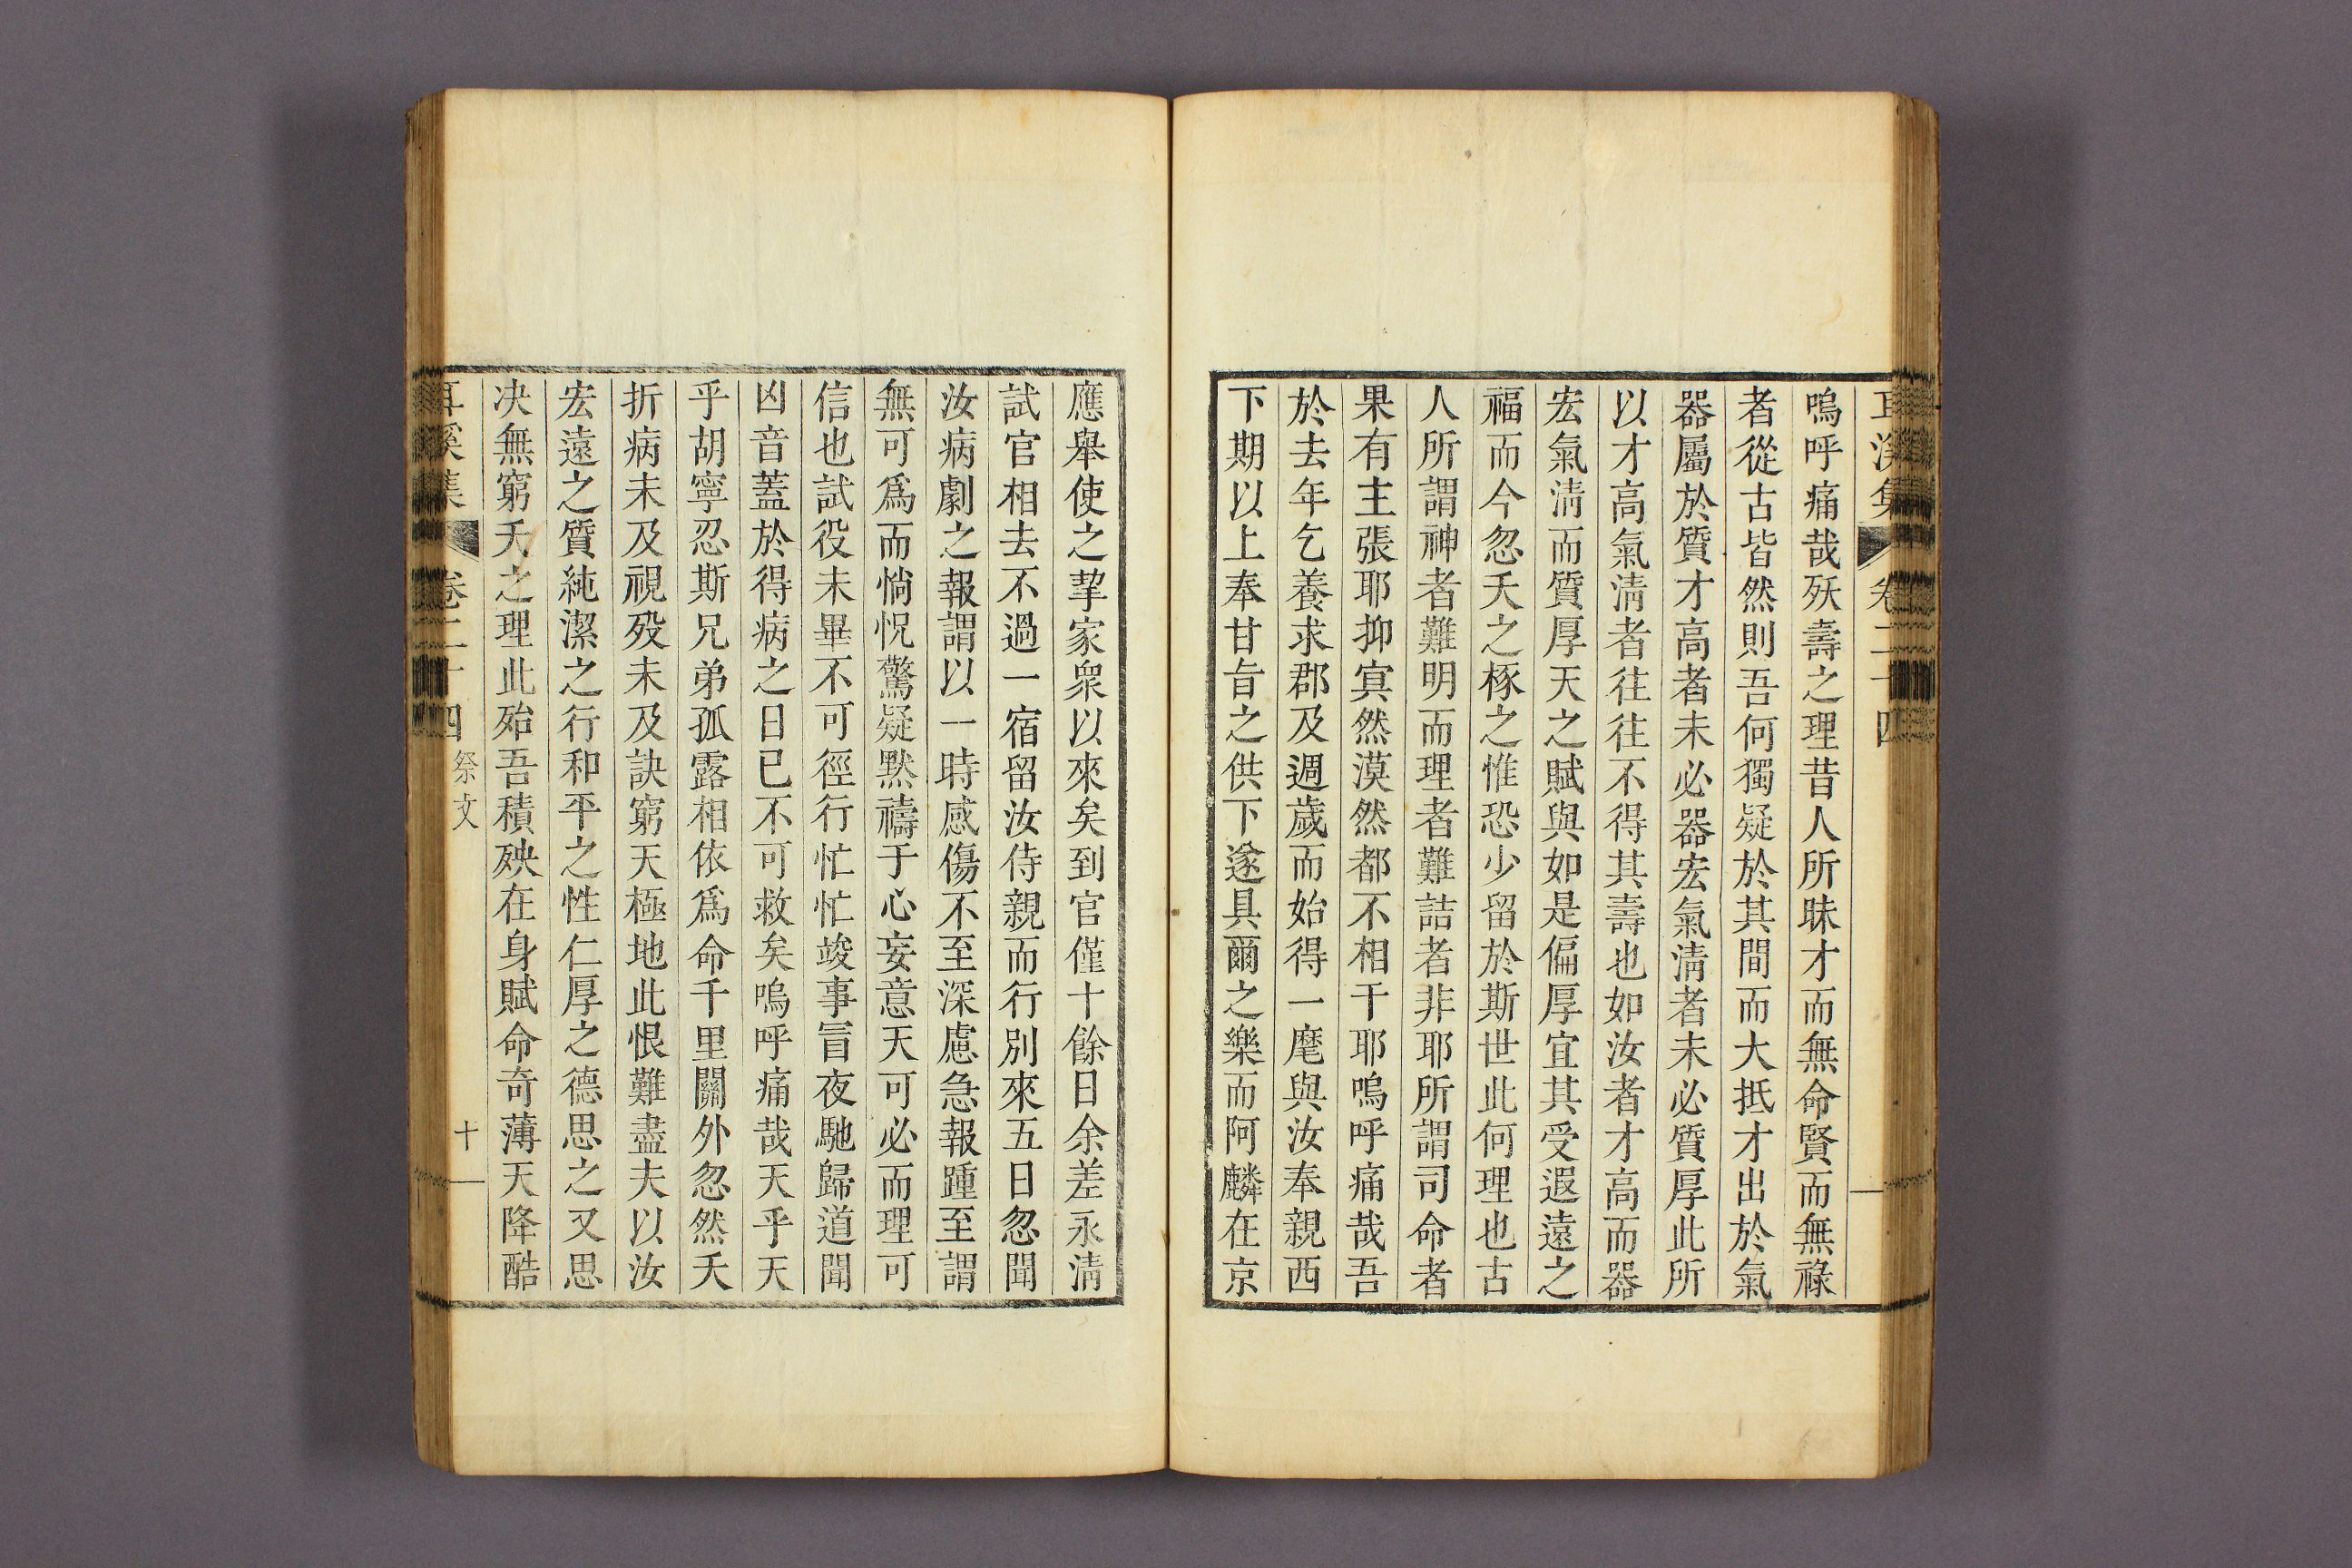 耳溪集 卷二十四
嗚呼痛哉殀壽之理昔人所昧才而無命賢而無祿
者從古皆然則吾何獨疑於其間而大抵才出於氣
器屬於質才高者未必器宏氣淸者未必質厚此所
以才高氣淸者往往不得其壽也如汝者才高而器
宏氣淸而質厚天之賦與如是偏厚宜其受遐遠之
福而今忽夭之椓之惟恐少留於斯世此何理也古
人所謂神者難明而理者難詰者非耶所謂司命者
果有主張耶抑冥然漠然都不相干耶嗚呼痛哉吾
於去年乞養求郡及週歲而始得一麾與汝奉親西
下期以上奉甘旨之供下遂具爾之樂而阿麟在京
應舉使之挈家衆以來矣到官僅十餘日余差永淸
試官相去不過一宿留汝侍親而行別來五日忽聞
汝病劇之報謂以一時感傷不至深慮急報踵至謂
無可爲而惝怳驚疑黙禱于心妄意天可必而理可
信也試役未畢不可徑行忙忙竣事冒夜馳歸道聞
凶音蓋於得病之日已不可救矣嗚呼痛哉天乎天
乎胡寧忍斯兄弟孤露相依爲命千里關外忽然夭
折病未及視歿未及訣窮天極地此恨難盡夫以汝
宏遠之質純潔之行和平之性仁厚之德思之又思
决無窮夭之理此殆吾積殃在身賦命奇薄天降酷
耳溪集 卷二十四 祭文 十